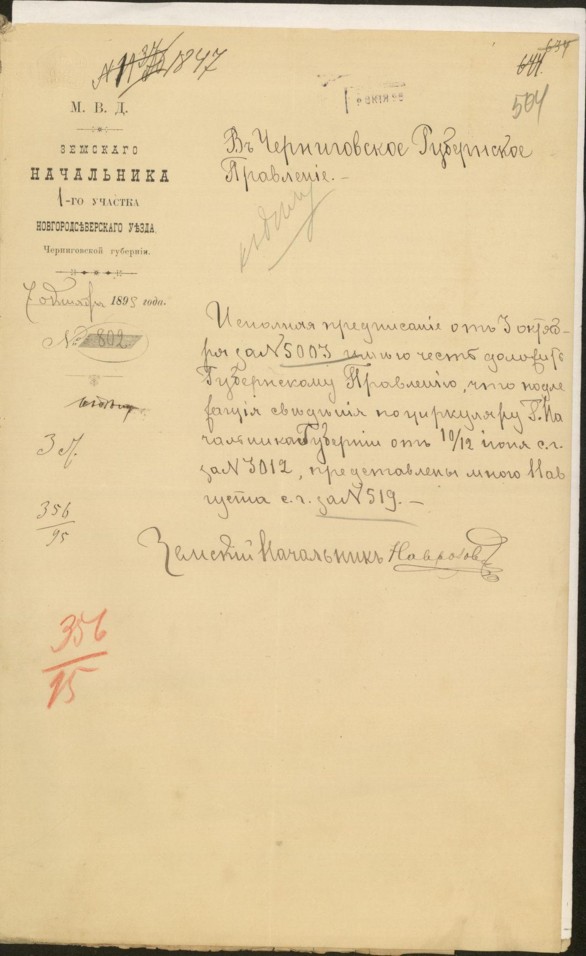 1847
504
М. В. Д.
ЗЕМСКАГО
НАЧАЛЬНИКА
1-ГО УЧАСТКА
НОВГОРОДСѢВЕРСКАГО УѢЗДА,
Черниговской губерніи.
7 октября 1895 года.
№ 802
Въ Черниговское Губернское
Правленіе. –
Исполняя предписаніе отъ 3 октяб-
ря за № 5003 имѣю честь доложить
Губернскому Правленію, что подле-
жащія свѣдѣнія по циркуляру Г. На
чальника Губерніи отъ 10/12 іюня с. г.
за № 3012, представлены мною 11 ав
густа с. г. за № 519. –
356
95
Земскій Начальникъ
356
95